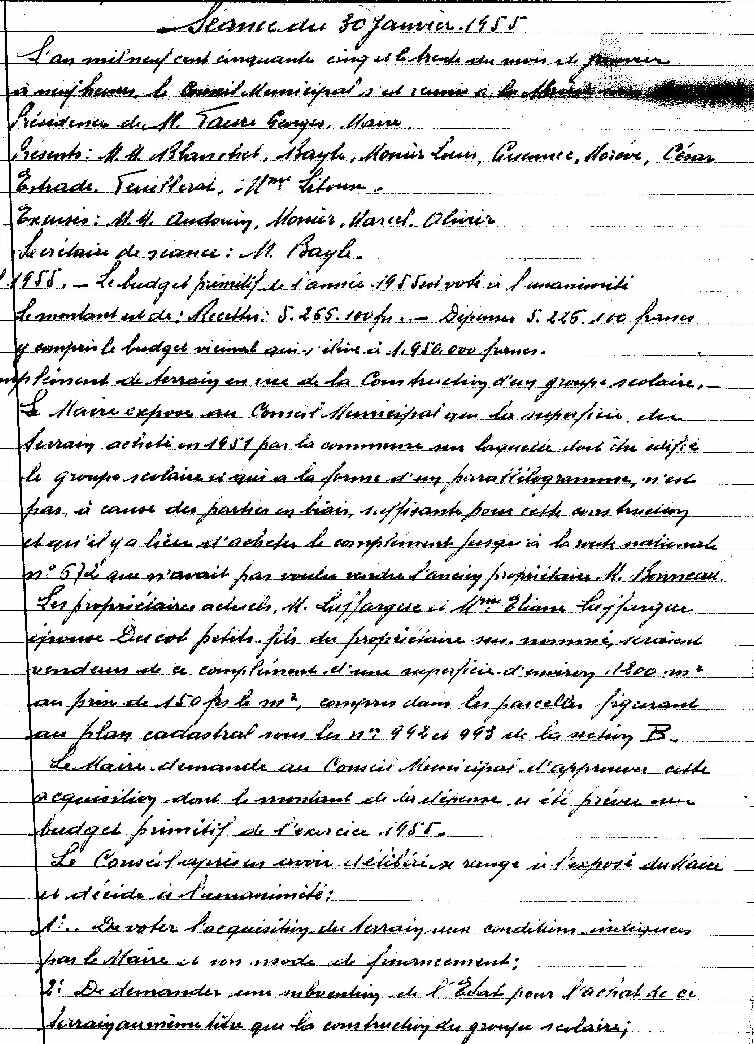 Séance du 30 Janvier 1955
L'an mil neuf cent cinquante cinq et le trente du mois de Janvier
à neuf heures, le Conseil Municipal s'est réuni à la Mairie sous
Présidence de M. Faure Georges, Maire
Présents: M.M. Blanchet, Bayle, Monier Louis, César
Estrade, Mme
Excusés: M.M. Audouin, Monier Marcel, Olivier
Secrétaire de séance: M. Bayle.
1955. — Le budget primitif de l'année 1955 est voté à l'unanimité
Le montant est de: Recettes: 5.265.100 frs. — Dépenses 5.226.100 francs
y compris le budget vicinal qui s'élève à 1.950.000 francs.
mplément de terrain en vue de la Construction d'un groupe scolaire. —
Le Maire expose au Conseil Municipal que la superficie du
terrain acheté en 1951 par la commune sur laquelle doit être édifié
le groupe scolaire et qui a la forme d'un parallélogramme, n'est
pas, à cause des parties en biais, suffisante pour cette construction
et qu'il y a lieu d'acheter le complément jusqu'à la route nationale
n° 672 que n'avait pas voulu vendre l'ancien propriétaire M. Bonneau.
Les propriétaires actuels, M. Laffargue et Mme Eliane Laffargue
épouse Ducot petits-fils du propriétaire sus-nommé, seraient
vendeurs de ce complément d'une superficie d'environ 1200 m²
au prix de 150 frs le m², compris dans les parcelles figurant
au plan cadastral sous les nos 992 et 993 de la section B.
Le Maire demande au Conseil Municipal d'approuver cette
acquisition dont le montant de la dépense a été prévu au
budget primitif de l'exercice 1955.
Le Conseil après en avoir délibéré se range à l'exposé du Maire
et décide à l'unanimité:
1°.. De voter l'acquisition du terrain aux conditions indiquées
par le Maire et son mode de financement;
2° De demander une subvention de l'Etat pour l'achat de ce
terrain au même titre que la construction du groupe scolaire;